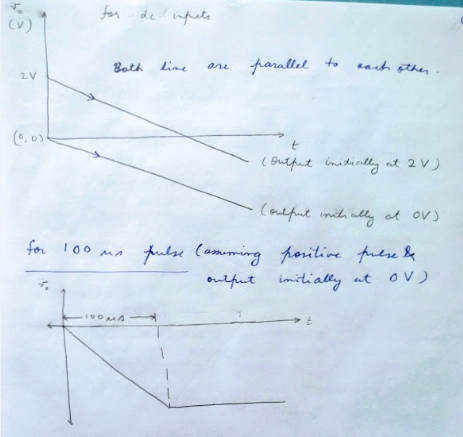 for dc inputs
v₀
(V)
Both line are parallel to each other.
2V
(0,0)
t
(output initially at 2V)
(output initially at 0V)
for 100 μs pulse (assuming positive pulse &
output initially at 0V)
v₀
100 μs
t